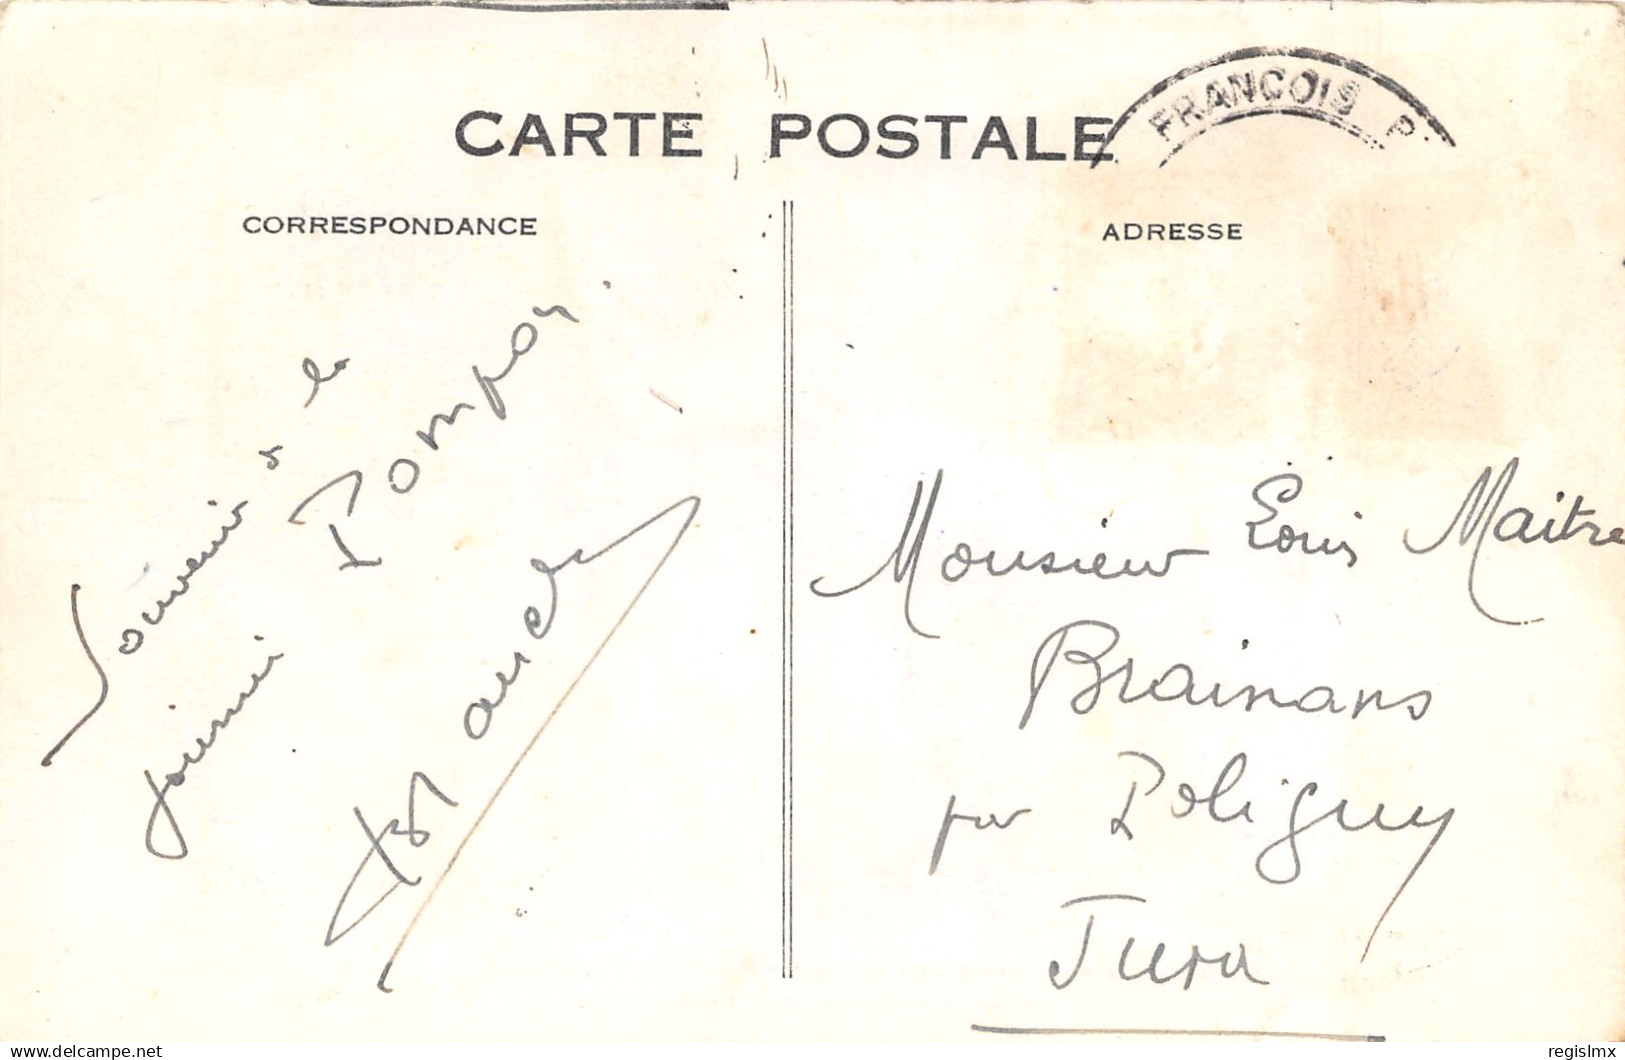 CARTE POSTALE
FRANCOIS P
CORRESPONDANCE
ADRESSE
Souvenir de la
journée Pompon.
Monsieur Louis Maitre
Brainans
par Poligny
Jura
www.delcampe.net
regislmx